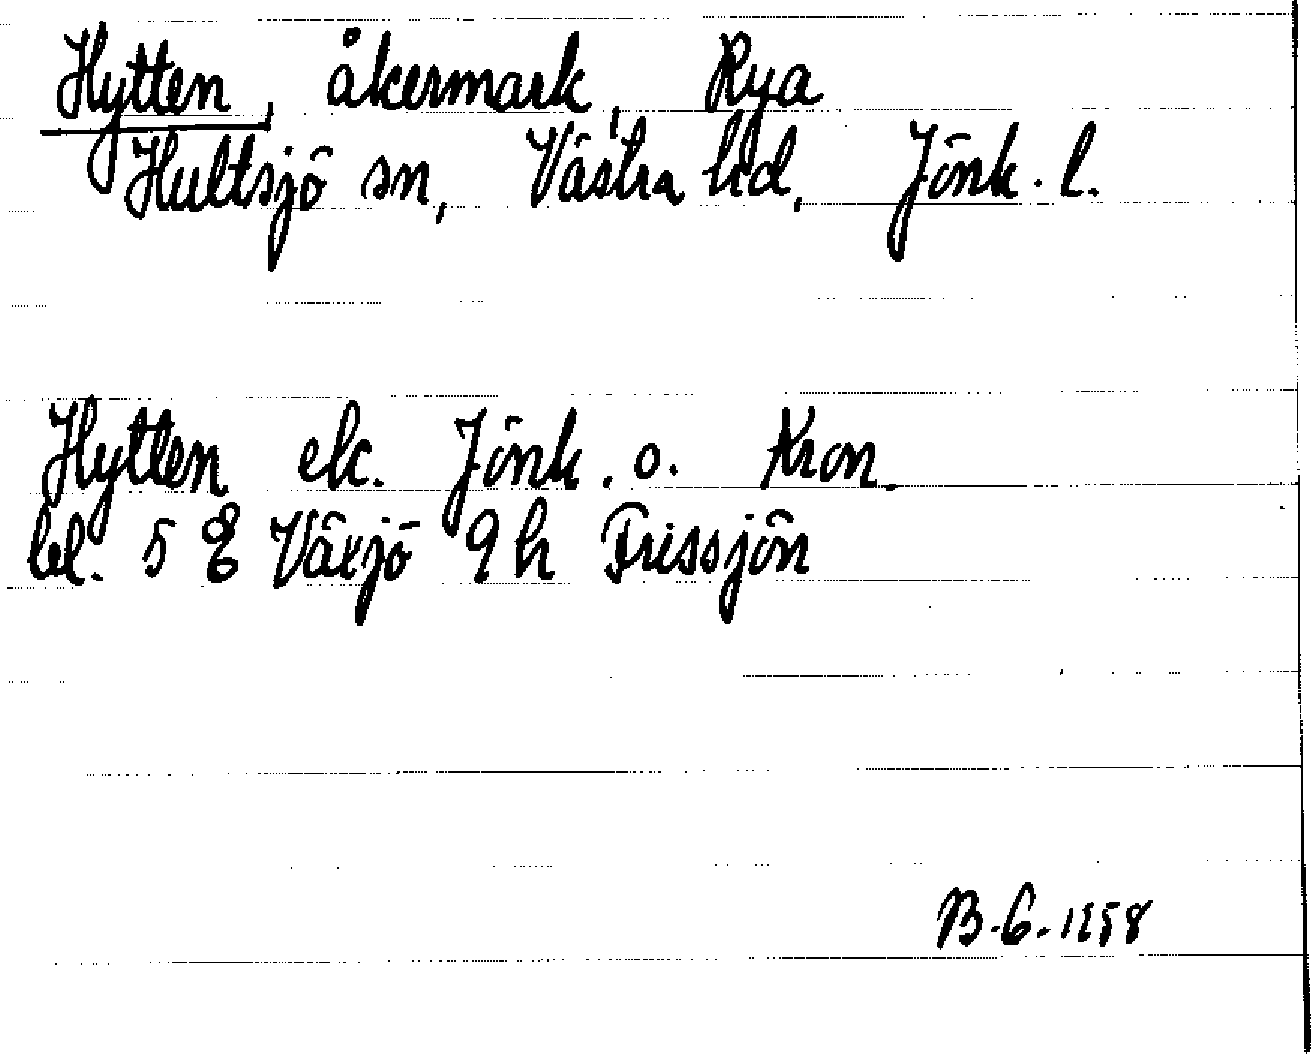 Hytten, åkermark, Rya
Hultsjö sn, Västra hd, Jönk. l.
Hytten ek. Jönk. o. Kron.
bl. 5 E Växjö 9 h Frissjön
B. G. 1958